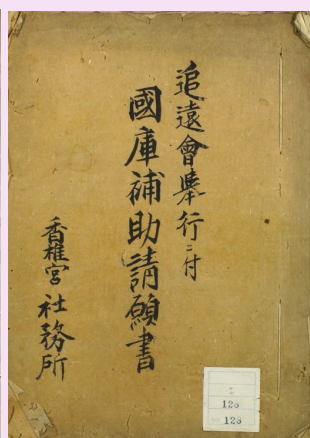 追遠會擧行ニ付
國庫補助請願書
香椎宮社務所
126
126